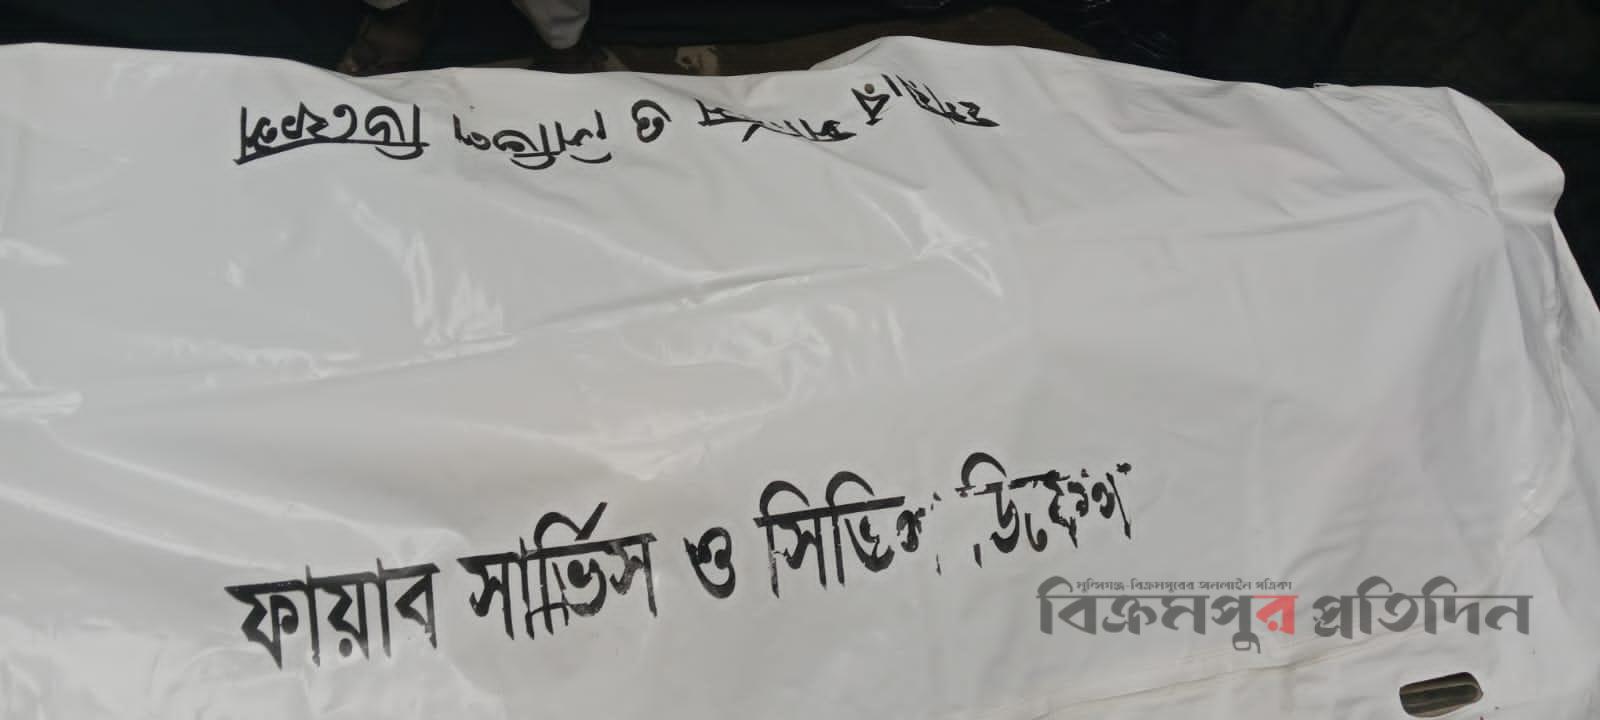 ফায়ার সার্ভিস ও সিভিল ডিফেন্স
ফায়ার সার্ভিস ও সিভিল ডিফেন্স
মুন্সিগঞ্জ-বিক্রমপুরের অনলাইন পত্রিকা
বিক্রমপুর প্রতিদিন